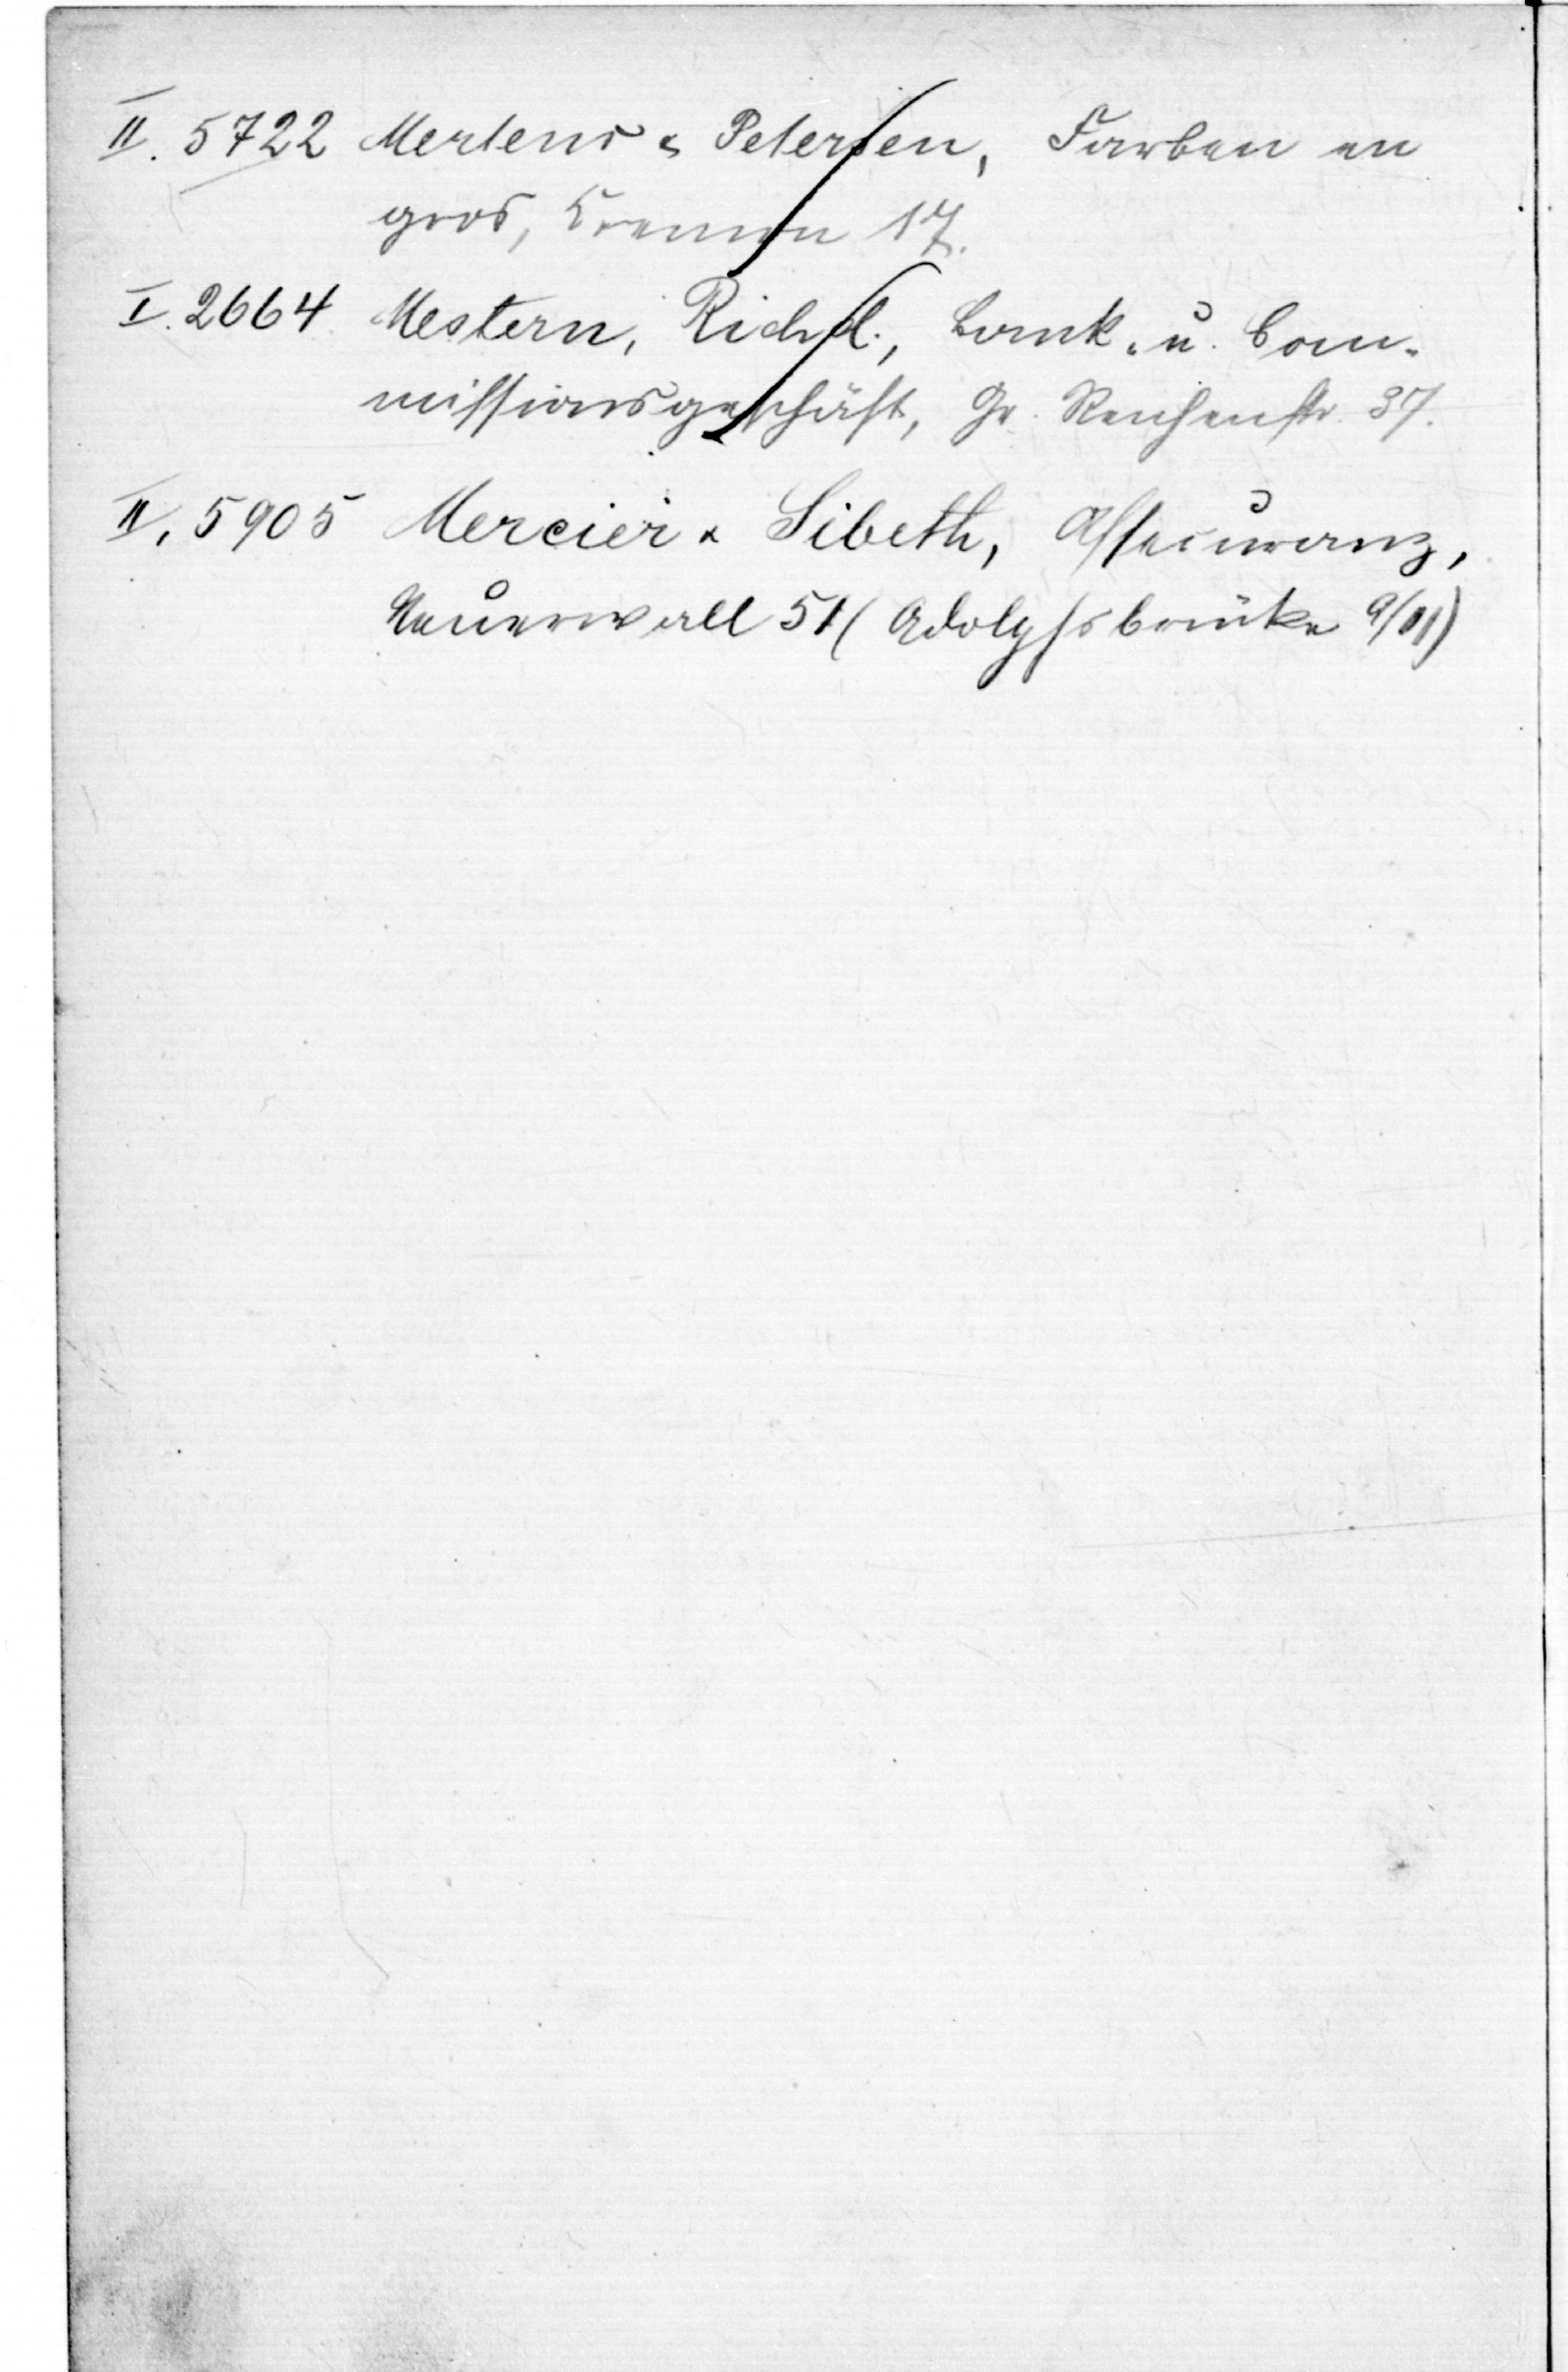 II. 5722 Mertens & Petersen, Farben en
gros, Cremon 17.
I. 2664 Mestern, Richd., Bank- u. Com-
missionsgeschäft, Gr. Reichenstr. 37.
II. 5905 Mercier & Sibeth, Assecuranz,
Neuerwall 51 (Adolphsbrücke 9/11)